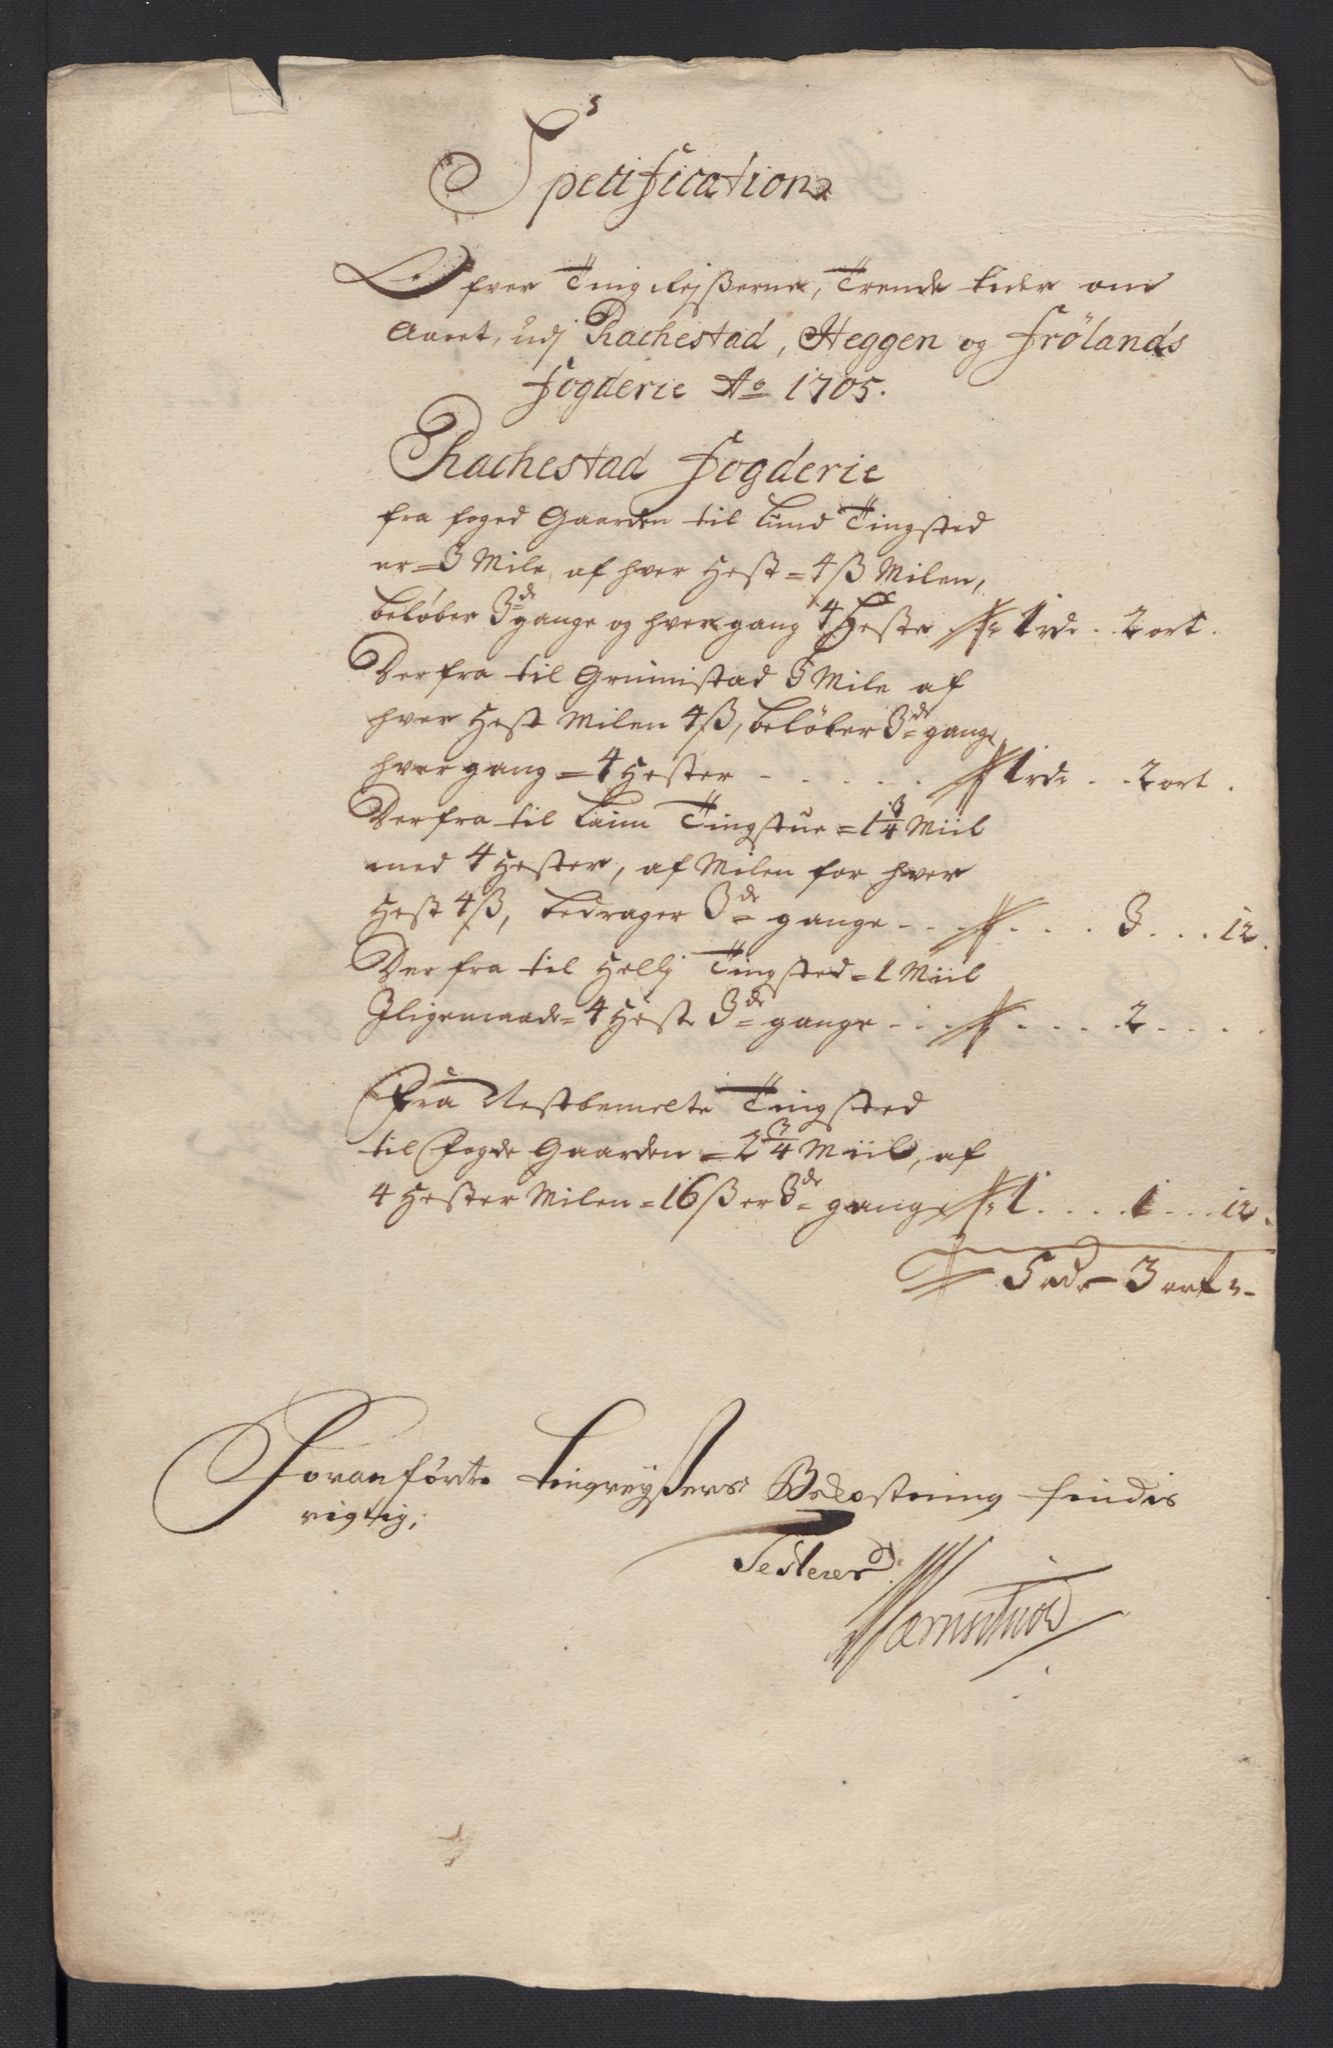 Specification
Ofver Tingreyßerne, Trende tider om
Aaret, udj Rachestad, Heggen og Frölands
Fogderie Ao 1705.
Rachestad Fogderie
fra foged Gaarden til Lund Tingsted
er = 3 Mile, af hver Hest = 4 ß Milen,
beløber 3de gange og hver gang 4 Heste 1 rde .. 2 ort.
Der fra til Grimstad 3 Mile af
hver Hest Milen 4 ß, beløber 3de gange
hver gang = 4 Hester - . . . . . 1 rde .. 2 ort.
Der fra til Laim Tingstue = 1 3/4 Miil
med 4 Hester, af Milen for hver
Hest 4 ß, bedrager 3de gange - . . . . . . 3 . . . 12.
Der fra til Hellj Tingsted = 1 Miil
Iligemaade = 4 Heste 3de gange - . . . . . . 2 . . . .
Fra Nestbemelte Tingsted
til Fogde Gaarden = 2 3/4 Miil, af
4 Hester Milen = 16 ß er 3de gange 1 . . . . 1 . . . 12.
5 rde - 3 ort -
Foranførte Tingreyßers Bekostning findis
rigtig,
Testerer